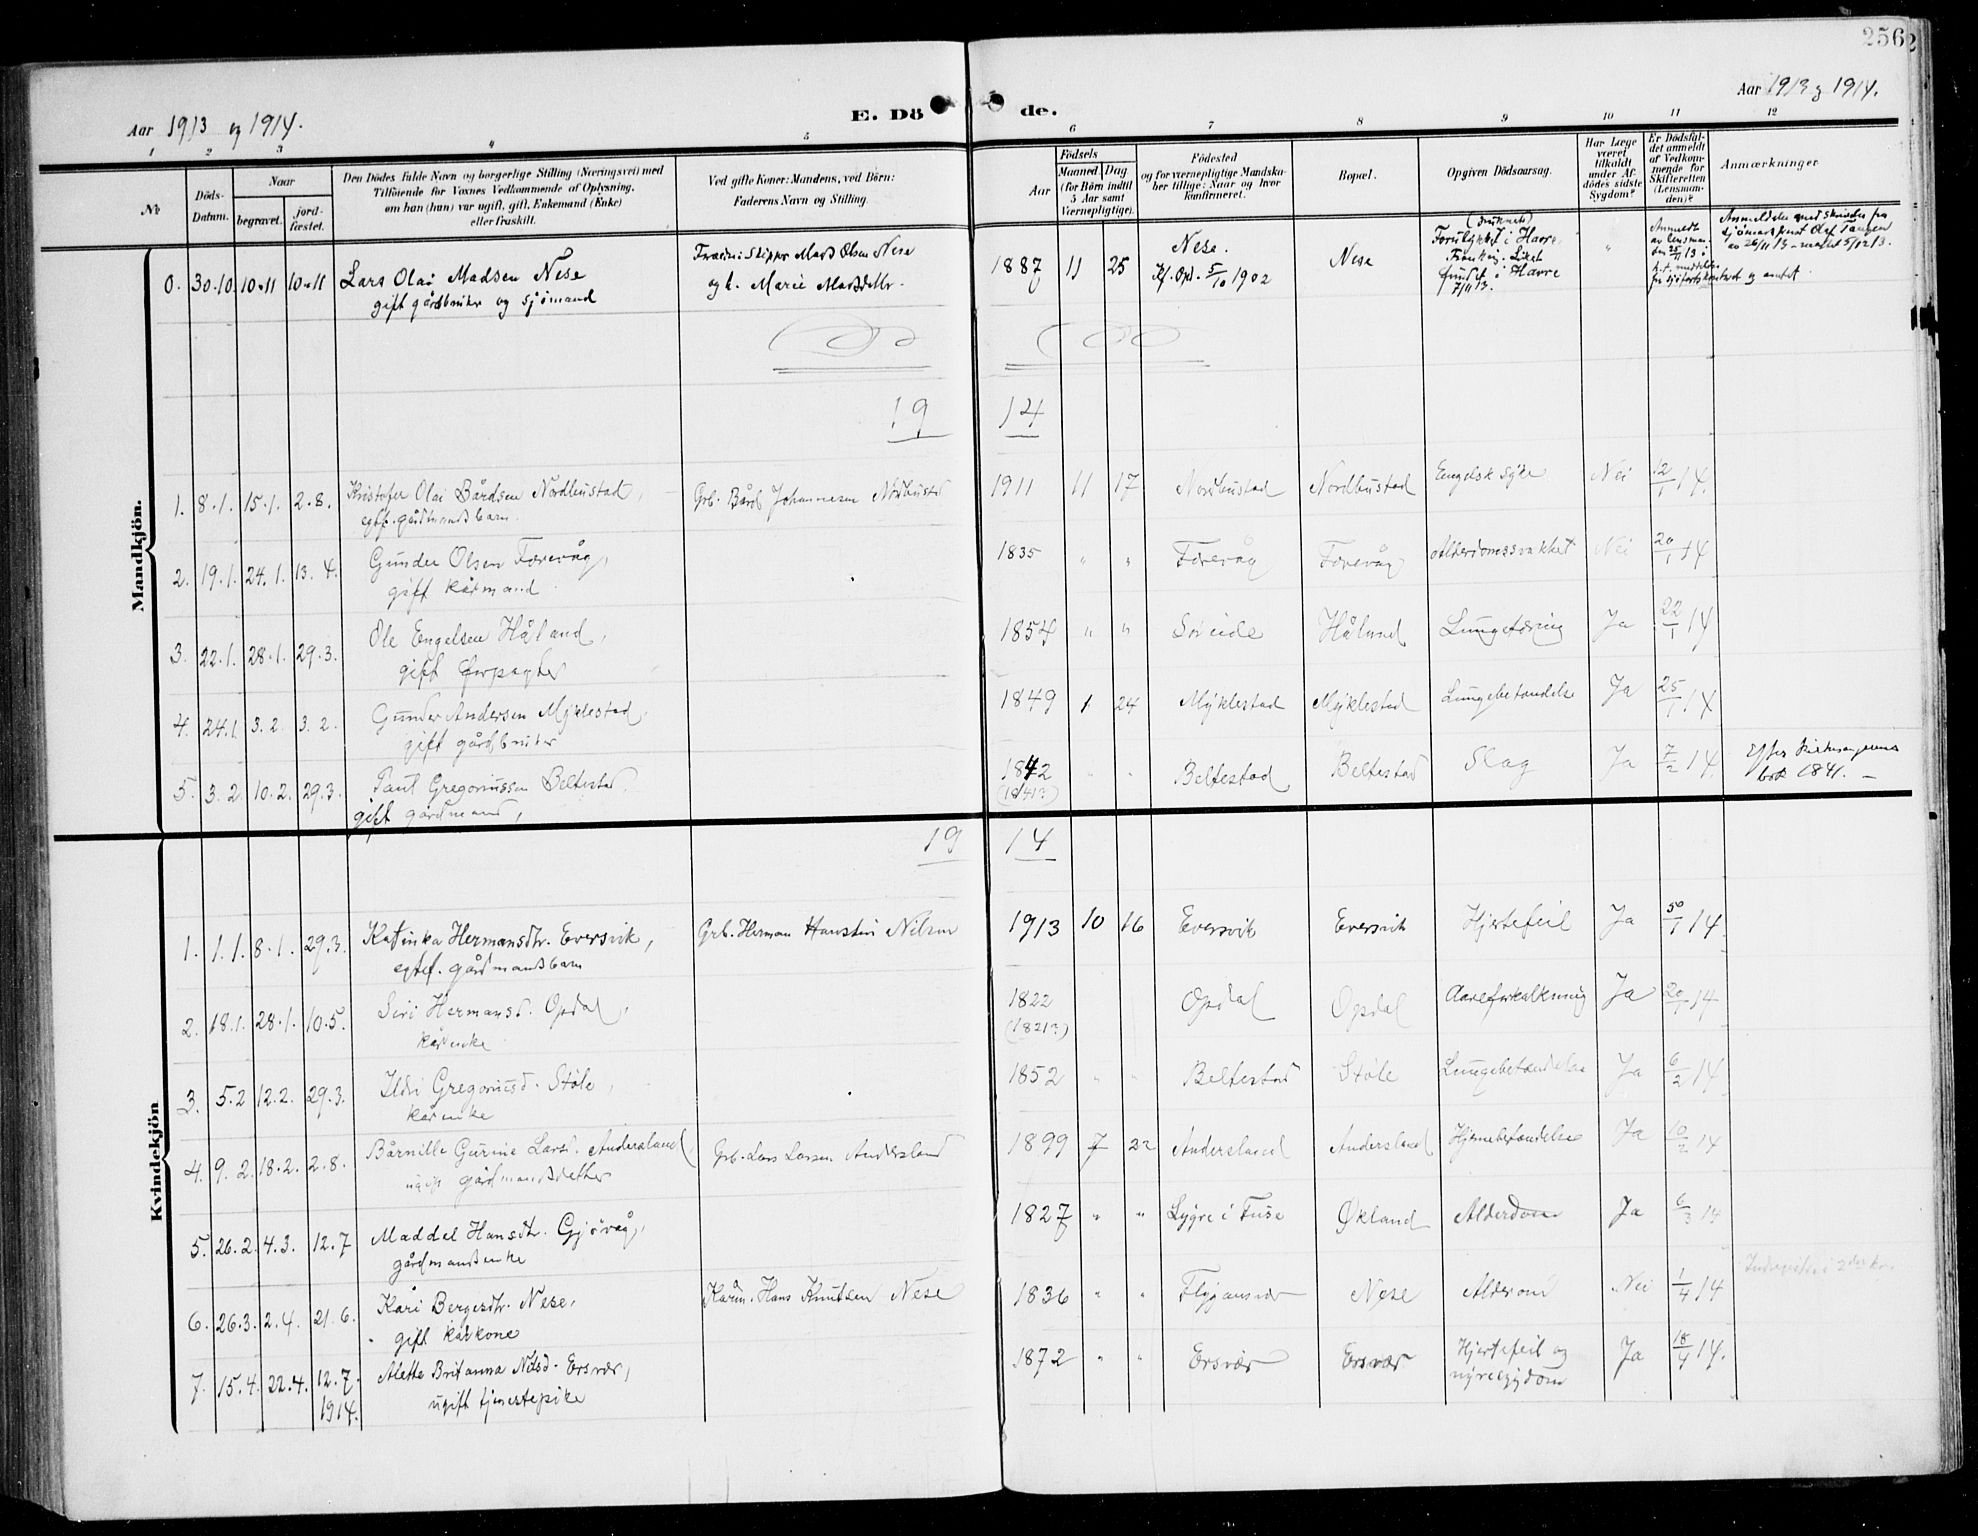 256
Aar 1913 og 1914.
E. Dö de.
Aar 1913 og 1914.
1 2 3 4 5 6 7 8 9 10 11 12
No
Döds-Datum.
Naar
begravet.
jord-fæstet.
Den Dödes fulde Navn og borgerlige Stilling (Næringsvei) med
Tilföiende for Voxnes Vedkommende af Oplysning,
om han (hun) var ugift, gift, Enkemand (Enke)
eller fraskilt.
Ved gifte Koner: Mandens, ved Börn:
Faderens Navn og Stilling.
Födsels
Aar
Maaned
Dag
(for Börn indtil
5 Aar samt
Værnepligtige).
Födested
og for værnepligtige Mandska-
ber tillige: Naar og hvor
konfirmeret.
Bopæl.
Opgiven Dödsaarsag.
Har Læge
været
tilkaldt
under Af-
dödes sidste
Sygdom?
Er Dödsfal-
det anmeldt
af Vedkom-
mende for
Skifteretten
(Lensman-
den)?
Anmærkninger
Mandkjön.
0. 30.10. 10.11 10.11 Lars Olai Madsen Nese
gift gårdbruker og sjömand
Skipper Mads Olsen Nese
og h. Marie Madsdatter.
1887 11 25 Nese.
Kf. Opd. 5/10 1902
Nese
(druknet)
Forulykket i Havre,
Frankrig. Liket
fundet i Havre
7/11 13.
Anmeldt
av lensman-
den 25/11 13
19 14
1. 8.1. 15.1. 2.8. Kristofer Olai Bårdsen Nordhustad,
egtf. gårdmandsbarn.
Grb. Bård Johannesen Nordhustad
1911 11 17 Nordhustad Nordhustad Engelsk syke Nei 12/1 14.
2. 19.1. 24.1. 13.4. Gunder Olsen Færevåg,
gift kårmand
1835 " " Færevåg Færevåg Alderdomssvakhet Nei 20/1 14
3. 22.1. 28.1. 29.3. Ole Engelsen Håland,
gift forpagter
1854 " " Söreide Håland Lungetæring Ja 22/1 14
4. 24.1. 3.2. 3.2. Gunder Andersen Mÿklestad,
gift gårdbruker
1849 1 24 Mÿklestad Mÿklestad Lungebetændelse Ja 25/1 14
5. 3.2. 10.2. 29.3. Paul Gregoriussen Beltestad,
gift gårdmand,
1842
(1841?)
" " Beltestad Beltestad Slag Ja 7/2 14.
bok 1841. —
Kvindekjön
19 14
1. 1.1. 8.1. 29.3. Katinka Hermansdtr. Eversvik,
egtef. gårdmandsbarn
Grb. Herman Nilsen
1913 10 16 Eversvik Eversvik Hjertefeil Ja 14
2. 18.1. 28.1. 10.5. Siri Hermansd. Opdal,
kårenke
1822
(1821?)
Opdal Opdal Aareforkalkning Ja 20/1 14
3. 5.2 12.2. 29.3. Ildri Gregoriusd. Støle,
kårenke
1852 " " Beltestad Støle Lungebetændelse Ja 6/2 14
4. 9.2. 18.2. 2.8. Bårnille Gurine Larsd. Andersland,
ugift gårdmandsdatter
Grb. Lars Larsen Andersland
1899 7 22 Andersland Andersland Hjernebetændelse Ja 10/2 14
5. 26.2. 4.3. 12.7 Maddel Hansdtr. Gjövåg,
gårdmandsenke
1827 " " Lygre i Fuse Økland Alderdom Ja 6/3 14
6. 26.3. 2.4. 21.6. Kari Bergesdtr. Nese,
gift kårkone
Kårm. Hans Knutsen Nese
1836 " " Flygansvær Nese Alderdom Nei 1/4 14
7. 15.4. 22.4. 12.7.
1914.
Alette Britanna Nilsd. Ersvær,
ugift tjenestepike
1872 " " Ersvær Ersvær Hjertefeil og
nyresygdom
Ja 18/4 14.